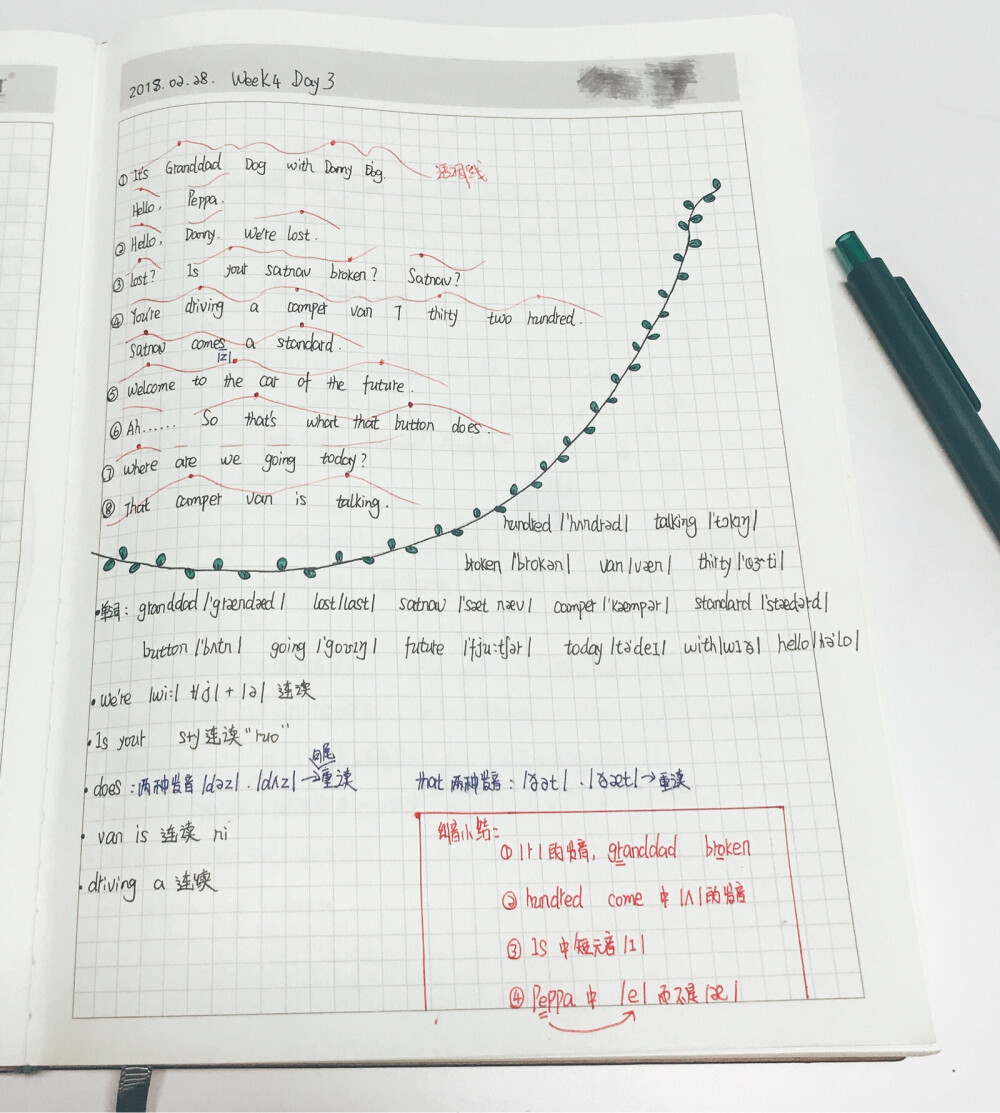 2018.02.28. Week4 Day 3
① It's Granddad Dog with Danny Dog. 语调线
Hello, Peppa.
② Hello, Danny. We're lost.
③ lost? Is your satnav broken? Satnav?
④ You're driving a camper van 7 thirty two hundred.
Satnav comes a standard.
|z|
⑤ Welcome to the car of the future.
⑥ Ah...... So that's what that button does.
⑦ where are we going today?
⑧ That camper van is talking.
hundred |'hʌndrəd| talking |'tɔkɪŋ|
broken |'brokən| van |væn| thirty |'θɝti|
·单词: granddad |'grændæd| lost |last| satnav |'sæt næv| camper |'kæmpər| standard |'stædərd|
button |'bʌtn| going |'goʊɪŋ| future |'fju:tʃər| today |tə'deɪ| with |wɪð| hello |hə'lo|
·We're |wi:| 加|j| + |ə| 连读
·Is your s+y 连读 "ruo"
句尾
·does: 两种发音 |dəz| . |dʌz| → 重读 that 两种发音: |ðət| . |ðæt| → 重读
· van is 连读 ni
·driving a 连读
纠音小结:
① |r| 的发音, granddad broken
② hundred come 中 |ʌ| 的发音
③ IS 中短元音 |ɪ|
④ Peppa 中 |e| 而不是 |æ|